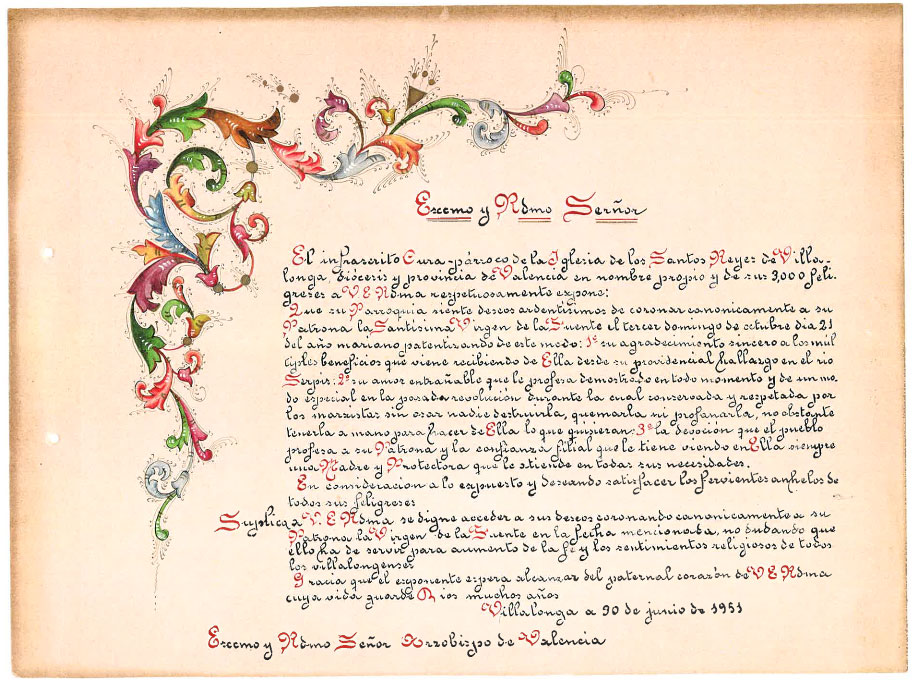 Excmo y Rdmo Señor
El infrascrito Cura-párroco de la Iglesia de los Santos Reyes de Villa-
longa, diócesis y provincia de Valencia en nombre propio y de sus 3,000 feli-
greses a V E Rdma respetuosamente expone:
Que su Parroquia siente deseos ardentisimos de coronar canonicamente a su
Patrona la Santisima Virgen de la Fuente el tercer domingo de octubre dia 21
del año mariano patentizando de este modo: 1º su agradecimiento sincero a los múl
tiples beneficios que viene recibiendo de Ella desde su providencial hallazgo en el rio
Serpis: 2º su amor entrañable que le profesa demostrado en todo momento y de un mo-
do especial en la pasada revolución durante la cual conservada y respetada por
los marxistas sin osar nadie destruirla, quemarla ni profanarla, no obstante
tenerla a mano para hacer de Ella lo que quisieran: 3º la devoción que el pueblo
profesa a su Patrona y la confianza filial que le tiene viendo en Ella siempre
una Madre y Protectora que le atiende en todas sus necesidades.
En consideración a lo expuesto y deseando satisfacer los fervientes anhelos de
todos sus feligreses
Suplica a V. E Rdma se digne acceder a sus deseos coronando canonicamente a su
Patrona la Virgen de la Fuente en la fecha mencionada, no dudando que
ello ha de servir para aumento de la fe y los sentimientos religiosos de todos
los villalongenses
Gracia que el exponente espera alcanzar del paternal corazón de V E Rdma
cuya vida guarde Dios muchos años
Villalonga a 30 de junio de 1951
Excmo y Rdmo Señor Arzobispo de Valencia